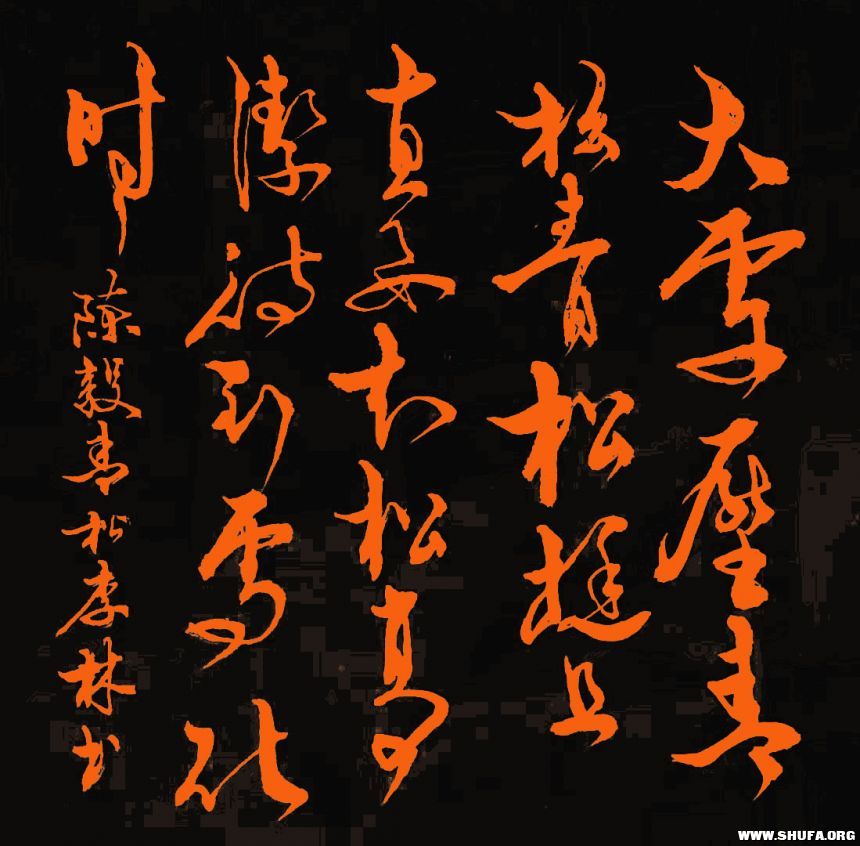 大雪压青
松青松挺且
直要知松高
潔待到雪化
时
陈毅青松李林书
WWW.SHUFA.ORG